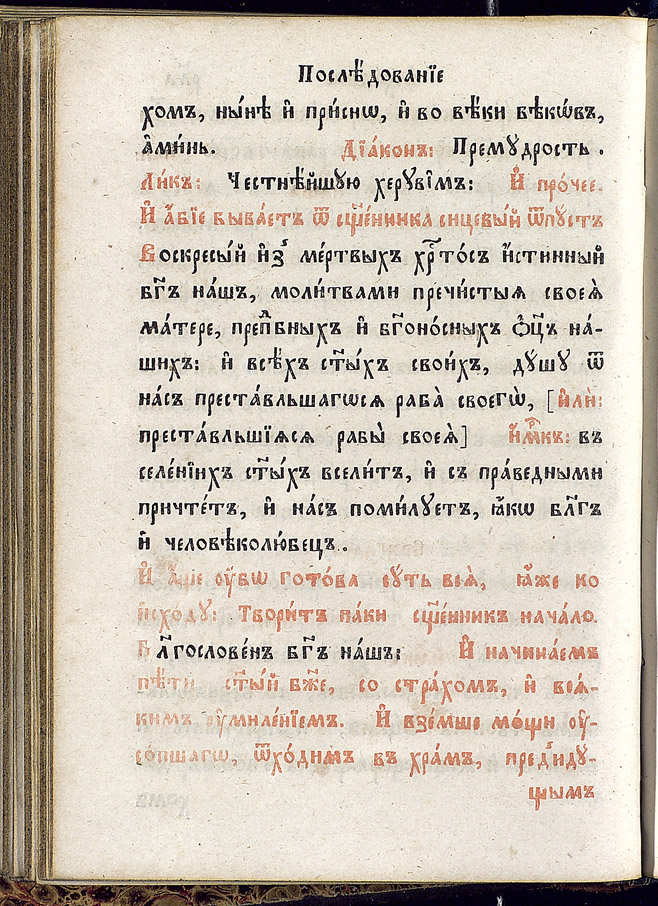 Послѣ́дованїе
хомъ, ны́нѣ и҆ при́снѡ, и҆ во вѣ́ки вѣкѡ́въ,
а҆ми́нь. Дїа́конъ: Премꙋ́дрость.
Ли́къ: Честнѣ́йшꙋю херꙋві̑мъ: И҆ про́чее.
И҆ а҆́бїе быва́етъ ѿ сщ҃е́нника сицевы́й ѿпꙋстъ
Воскресы́й и҆з̾ ме́ртвыхъ хрⷭ҇то́съ и҆́стинный
бг҃ъ на́шъ, моли́твами пречи́стыѧ своеѧ̀
ма́тере, прпⷣбныхъ и҆ бг҃оно́сныхъ ѻ҆ц҃ъ на́-
шихъ: и҆ всѣ́хъ ст҃ы́хъ свои́хъ, дꙋ́шꙋ ѿ
на́съ преста́вльшагѡсѧ раба̀ своегѡ̀, [и҆лѝ:
преста́вльшїѧсѧ рабы̀ своеѧ̀] и҆́мⷬ҇къ: въ
селе́нїихъ ст҃ы́хъ всели́тъ, и҆ съ пра́ведными
причте́тъ, и҆ на́съ поми́лꙋетъ, ꙗ҆́кѡ бл҃гъ
и҆ человѣколю́бецъ.
И҆ а҆́ще ᲂу҆́бѡ гото́ва сꙋ́ть всѧ̑, ꙗ҆̀же ко
и҆схо́дꙋ: Твори́тъ па́ки сщ҃е́нникъ нача́ло.
Бл҃гослове́нъ бг҃ъ на́шъ: И҆ начина́емъ
пѣ́ти ст҃ы́й бж҃е, со стра́хомъ, и҆ всѧ́-
кимъ ᲂу҆миле́нїемъ. И҆ взе́мше мо́щи ᲂу҆-
со́пшагѡ, ѿхо́димъ въ хра́мъ, пред̾идꙋ́-
щымъ